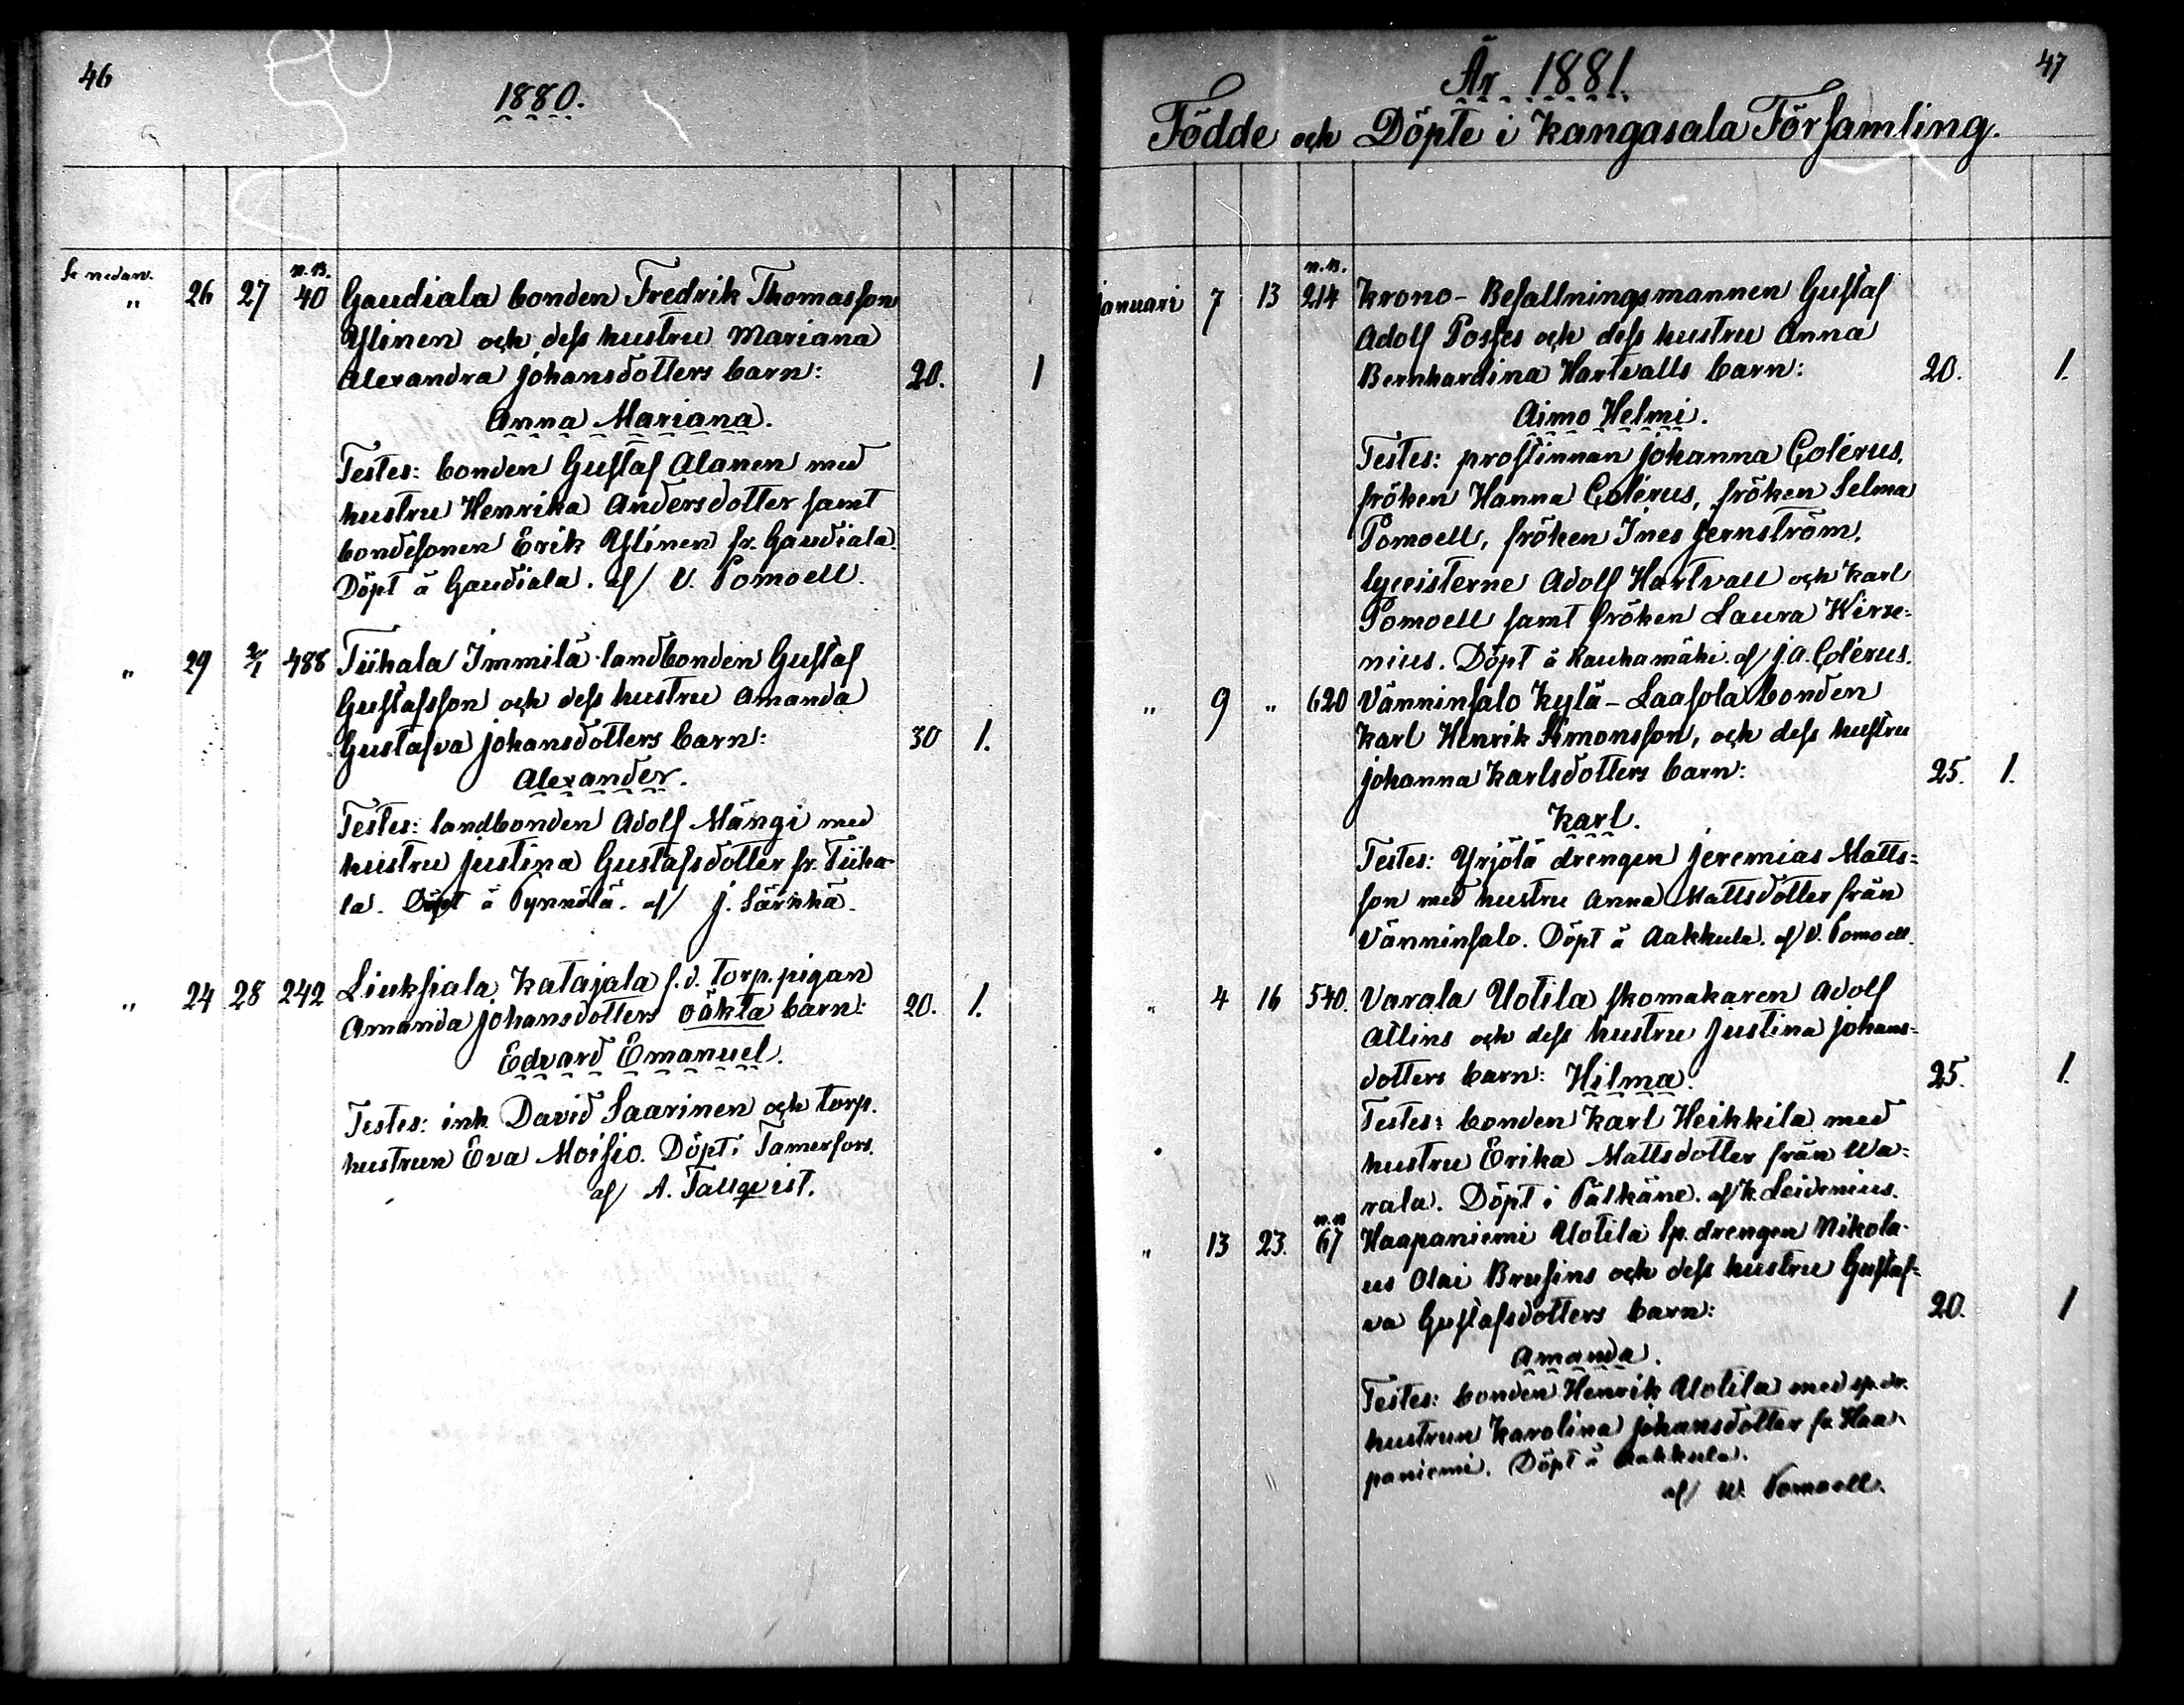 46
1880.
Se nedan.
n.B.
" 26 27 40 Gaudiala bonden Fredrik Thomasson
Yllinen och dess hustru Mariana
Alexandra Johansdotters barn: 20. 1
Anna Mariana.
Testes: bonden Gustaf Alanen med
hustru Henrika Andersdotter samt
bondesonen Erik Yllinen fr. Gaudiala.
Döpt å Gaudiala. af/ V. Pomoell.
" 29 2/1 488 Tiihala Immilä landbonden Gustaf
Gustafsson och dess hustru Amanda
Gustafva Johansdotters barn: 30 1.
Alexander.
Testes: landbonden Adolf Mängi med
hustru Justina Gustafsdotter fr. Tiiha-
la. Döpt å Pynnölä. af/ J. Särkkä.
" 24 28 242 Liuksiala Katajala f.d. torp. pigan
Amanda Johansdotters oäkta barn: 20. 1.
Edvard Emanuel.
Testes: inh. David Saarinen och torp.
hustrun Eva Moisio. Döpt i Tamerfors.
af/ A. Tallqvist.
47
År 1881.
Födde och Döpte i Kangasala Församling.
n.B.
Januari 7 13 214 Krono-Befallningsmannen Gustaf
Adolf Posses och dess hustru Anna
Bernhardina Hartvalls barn: 20. 1.
Aimo Helmi.
Testes: prostinnan Johanna Colérus,
fröken Hanna Colérus, fröken Selma
Pomoell, fröken Ines Jernström,
lyceisterne Adolf Hartvall och Karl
Pomoell samt fröken Laura Wirze-
nius. Döpt å Rauhamäki af/ J.A. Colérus.
" 9 " 620 Vänninsalo Kylä-Laasola bonden
Karl Henrik Simonsson, och dess hustru
Johanna Karlsdotters barn: 25. 1.
Karl.
Testes: Yrjölä drengen Jeremias Matts-
son med hustru Anna Mattsdotter från
Vänninsalo. Döpt å Aakkula. af/ V. Pomoell.
" 4 16 540. Varala Uotila skomakaren Adolf
Allins och dess hustru Justina Johans-
dotters barn: Hilma. 25. 1.
Testes: bonden Karl Heikkilä med
hustru Erika Mattsdotter från Wa-
rala. Döpt i Pälkäne. af/ K. Leidenius.
n.B.
" 13 23. 67 Haapaniemi Uotila sp. drengen Nikola-
us Olai Brusins och dess hustru Gustaf-
va Gustafsdotters barn: 20. 1
Amanda.
Testes: bonden Henrik Uotila med sp.dr.
hustrun Karolina Johansdotter fr Haa-
paniemi. Döpt å Aakkula.
af/ W. Pomoell.